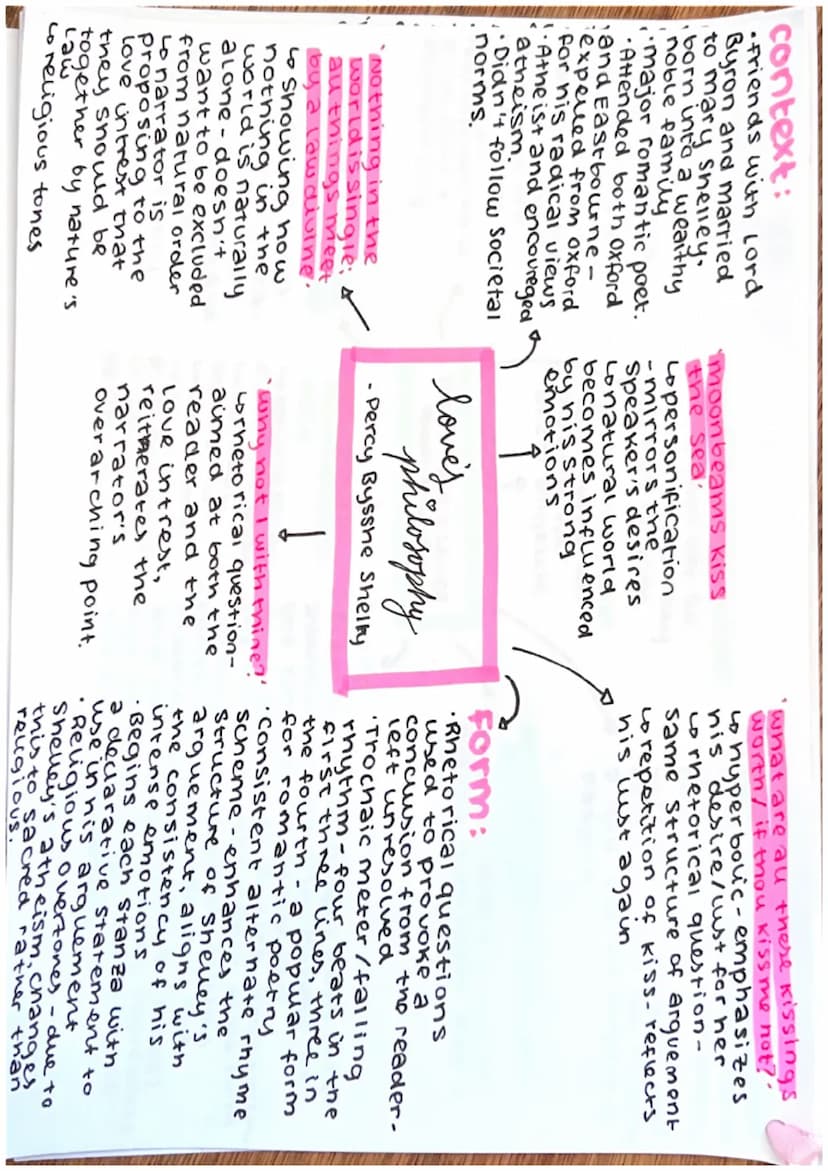 context:
• friends with Lord
Byron and married
to mary shelley.
born into a wealthy
noble family
• major romantic poet.
• Attended both oxford
and Eastbourne -
expelled from oxford
for his radical views
• Atheist and encouraged
atheism.
• Didn't follow societal
norms.
'moonbeams kiss
the sea'
↳ personification
- mirrors the
speaker's desires
↳ natural world
becomes influenced
by his strong
emotions
'what are all these kissings
worth/ if thou kiss me not?'
↳ hyperbolic - emphasizes
his desire/lust for her
↳ rhetorical question -
same structure of arguement
↳ repetition of kiss - reflects
his lust again
'Nothing in the
world is single;
all things meet
by a law divine.
↳ Showing how
nothing in the
world is naturally
alone - doesn't
want to be excluded
from natural order
↳ narrator is
proposing to the
love intrest that
they should be
together by nature's
law
↳ religious tones
love's
philosophy
- Percy Bysshe Shelly
'why not I with thine?'
↳ rhetorical question -
aimed at both the
reader and the
love intrest,
reitterates the
narrator's
overarching point.
form:
• Rhetorical questions
used to provoke a
conclusion from the reader -
left unresolved
• Trochaic meter/falling
rhythm - four beats in the
first three lines, three in
the fourth - a popular form
for romantic poetry
• consistent alternate rhyme
scheme - enhances the
structure of Shelley's
arguement, aligns with
the consistency of his
intense emotions
• Begins each stanza with
a declarative statement to
use in his arguement
• Religious overtones - due to
Shelley's atheism, changes
this to sacred rather than
religious.